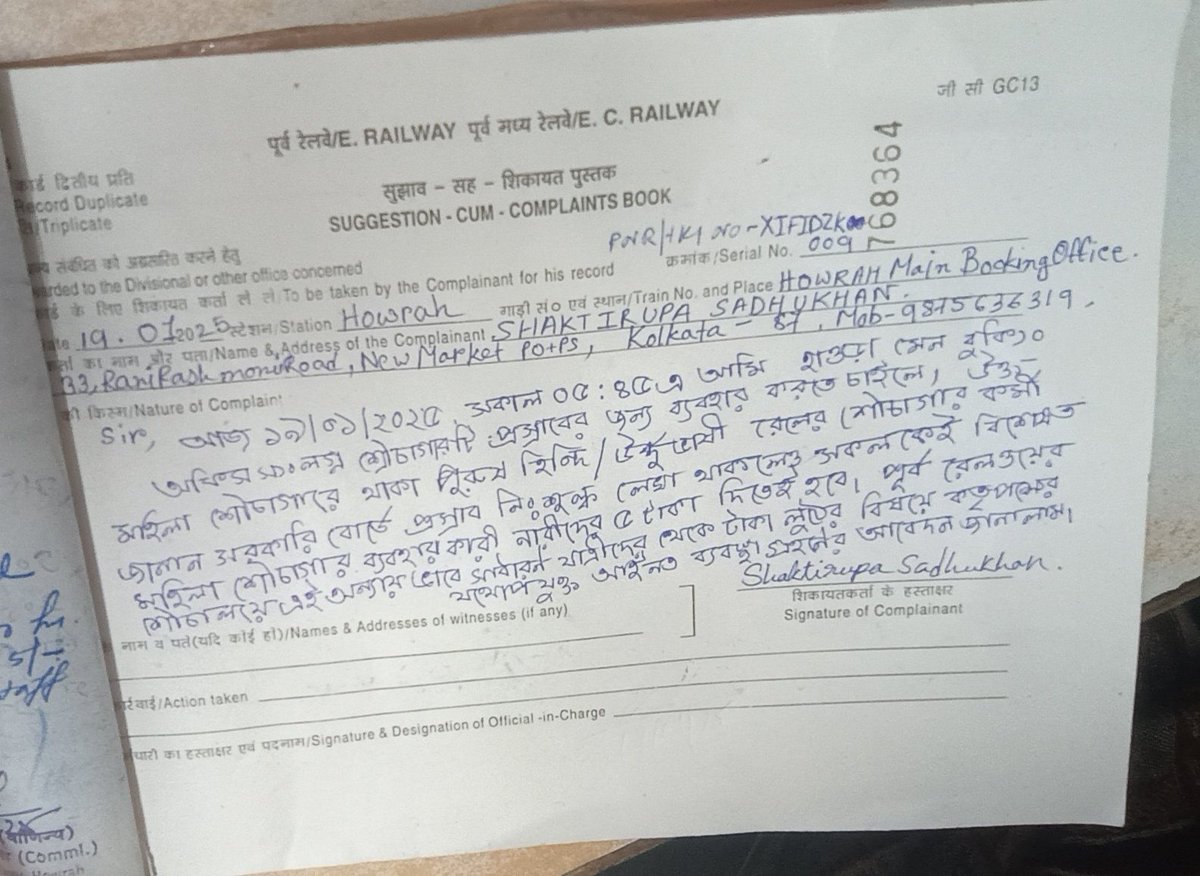 जी सी GC13
पूर्व रेलवे/E. RAILWAY पूर्व मध्य रेलवे/E. C. RAILWAY
768364
कार्ड द्वितीय प्रति
Record Duplicate
Triplicate
सुझाव - सह - शिकायत पुस्तक
SUGGESTION - CUM - COMPLAINTS BOOK
PNR/ NO-XIFIDZK
संबंधित को अग्रसारित करने हेतु
क्रमांक/Serial No. 009
arded to the Divisional or other office concerned
के लिए शिकायत कर्ता ले ले/To be taken by the Complainant for his record
19.01.2025 स्टेशन/Station Howrah गाड़ी सं० एवं स्थान/Train No. and Place HOWRAH Main Booking Office.
का नाम और पता/Name & Address of the Complainant SHAKTIRUPA SADHUKHAN.
33, Rani Rashmoni Road, New Market PO+PS, Kolkata - 87, Mob-9875636319.
की किस्म/Nature of Complaint
Sir, আজ ১৯/০১/২০২৫, সকাল ০৫:৪৫ এ আমি হাওড়া মেন বুকিং
অফিস সংলগ্ন শৌচাগারটি প্রস্রাবের জন্য ব্যবহার করতে চাইলে, উক্ত
মহিলা শৌচাগারে থাকা পুরুষ হিন্দি/উর্দু ভাষী রেলের শৌচাগার কর্মী
জানান সরকারি বোর্ডে প্রস্রাব নিঃশুল্ক লেখা থাকলেও সকলকেই বিশেষত
মহিলা শৌচাগার ব্যবহারকারী নারীদের ৫ টাকা দিতেই হবে। পূর্ব রেলওয়ের
শৌচালয়ে এই অন্যায় ভাবে সাধারন যাত্রীদের থেকে টাকা লুটের বিষয়ে কতৃপক্ষের
যথোপযুক্ত আইনত ব্যবস্থা গ্রহনের আবেদন জানালাম।
Shaktirupa Sadhukhan.
शिकायतकर्ता के हस्ताक्षर
Signature of Complainant
नाम व पते(यदि कोई हो)/Names & Addresses of witnesses (if any)
/Action taken
का हस्ताक्षर एवं पदनाम/Signature & Designation of Official -in-Charge
(वाणिज्य)
(Comml.)
Howrah